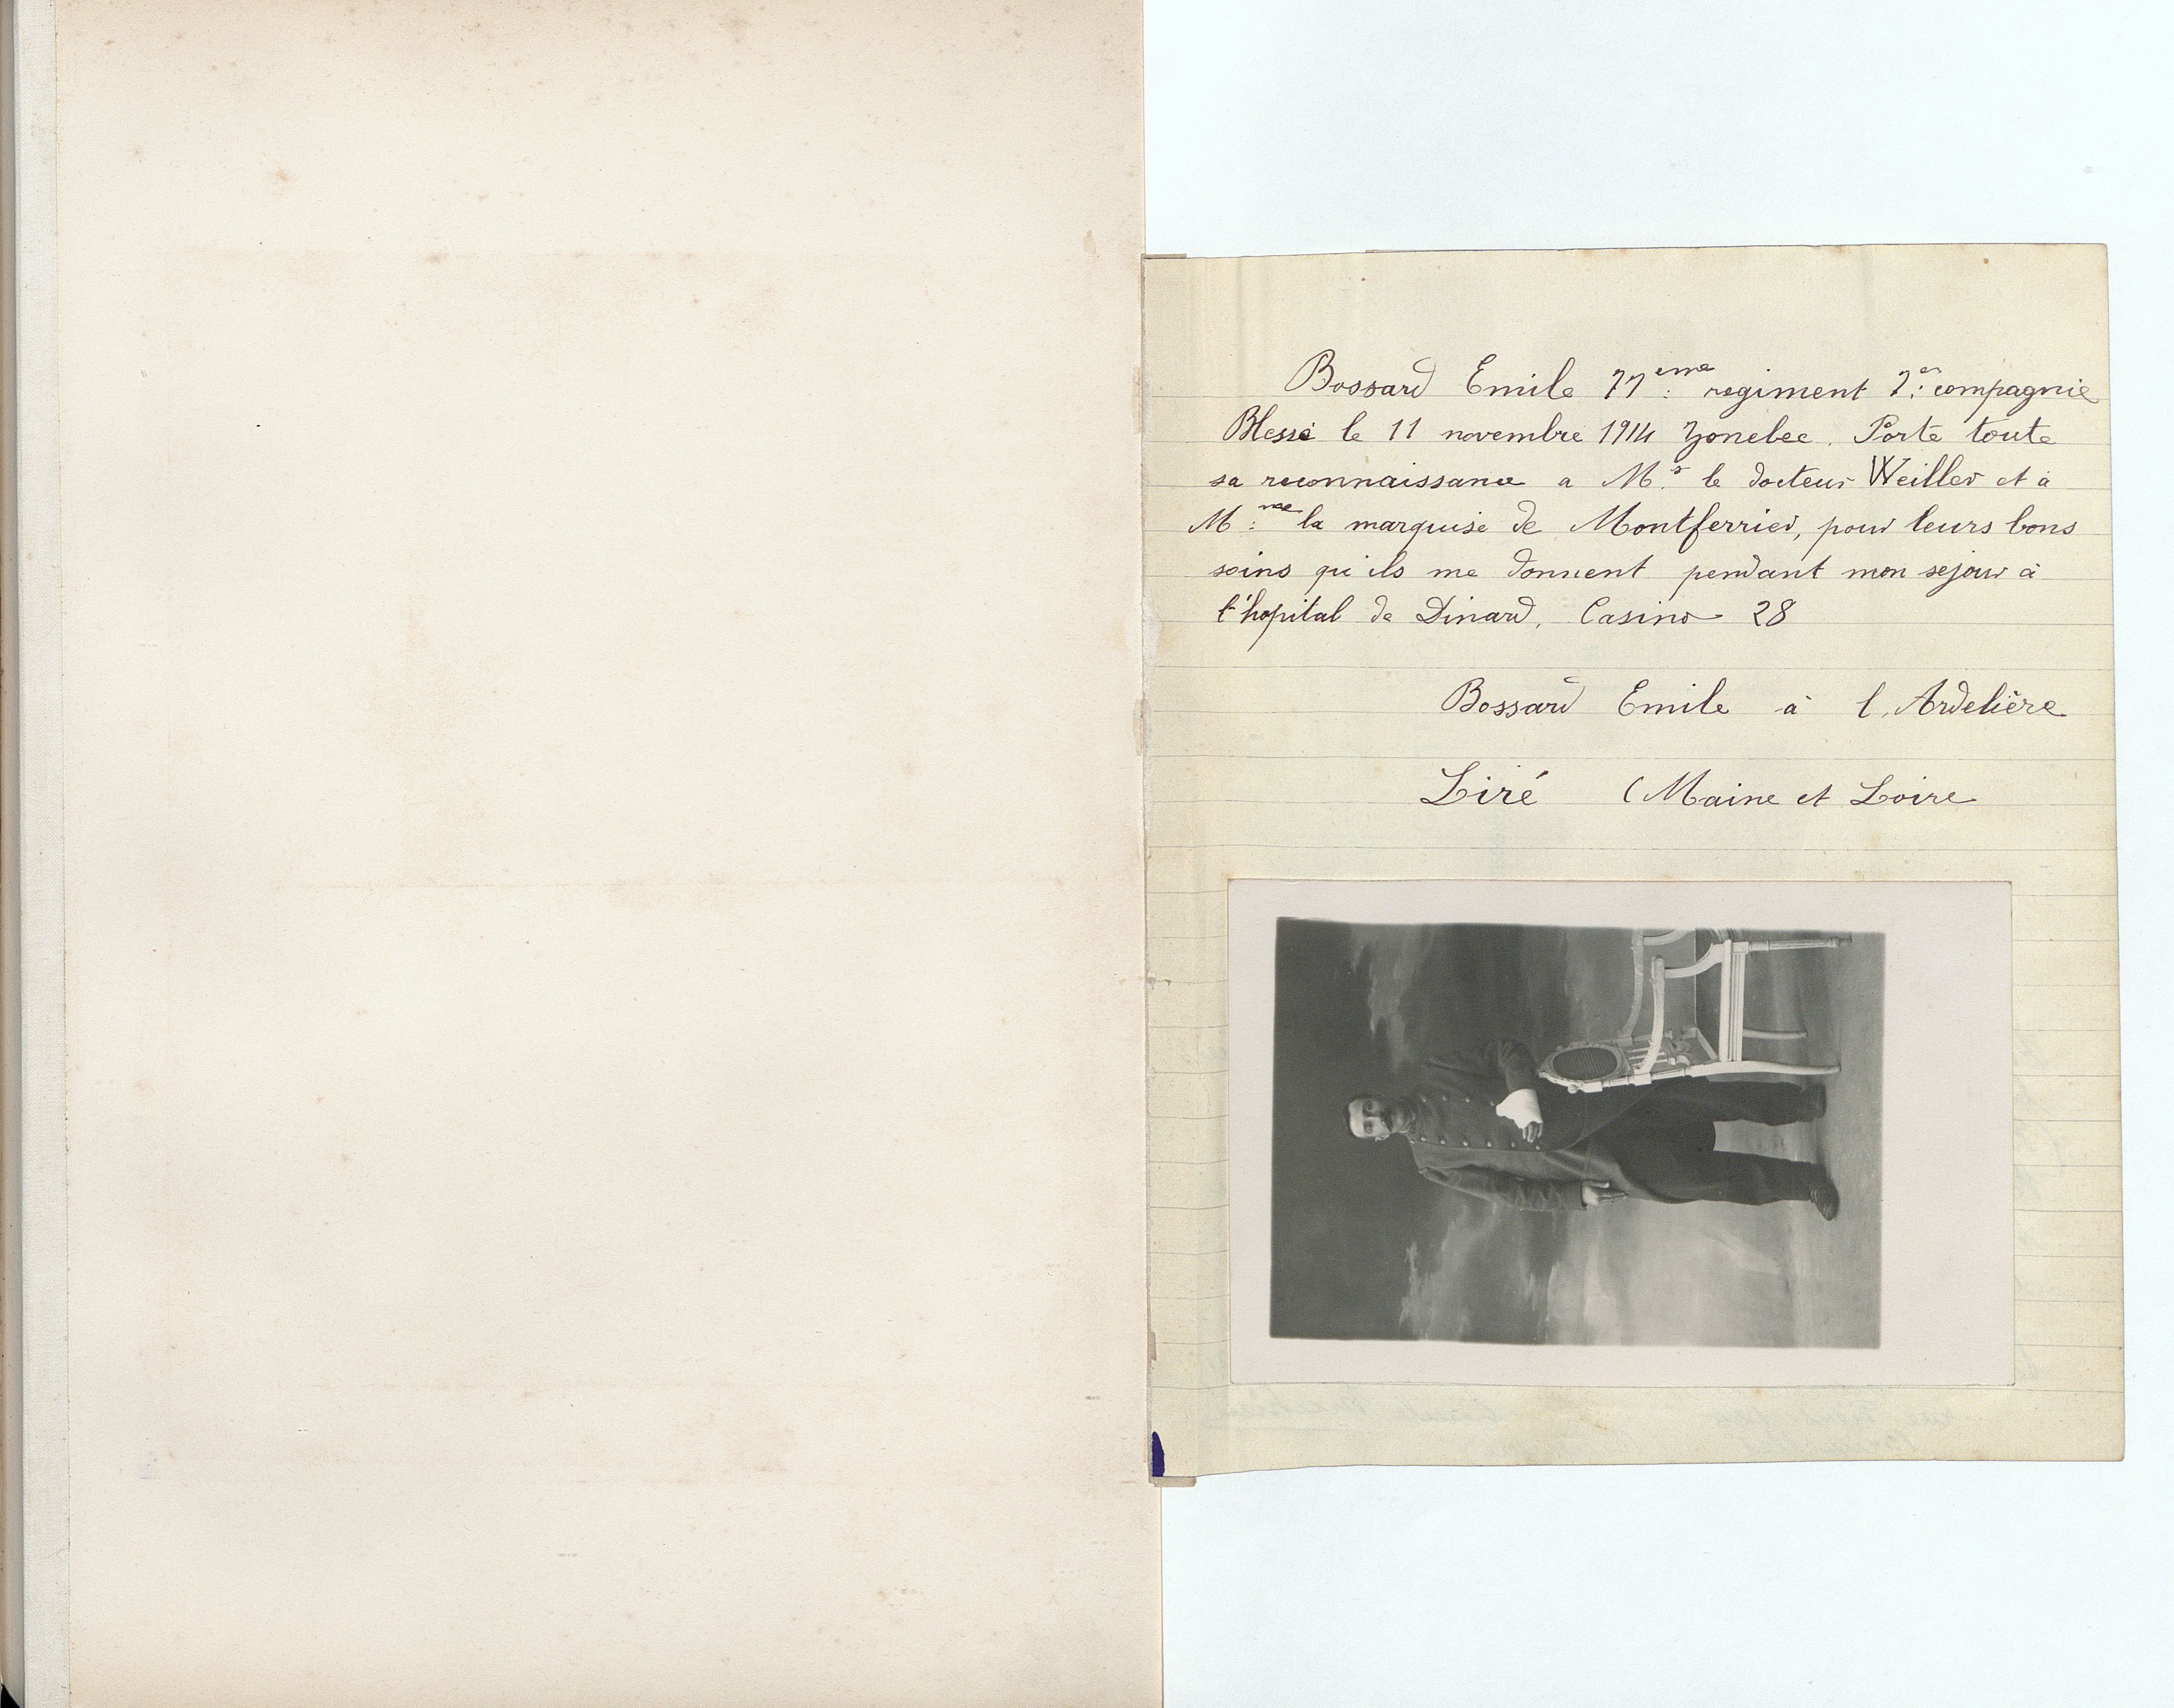 Bossard Emile 77ème regiment 7e compagnie
Blessé le 11 novembre 1914 Zonebec. Porte toute
sa reconnaissance a Mr le docteur Weiller et à
Mme la marquise de Montferrier, pour leurs bons
soins qu'ils me donnent pendant mon sejour à
l'hopital de Dinard, Casino 28
Bossard Emile à l'Ardelière
Liré (Maine et Loire